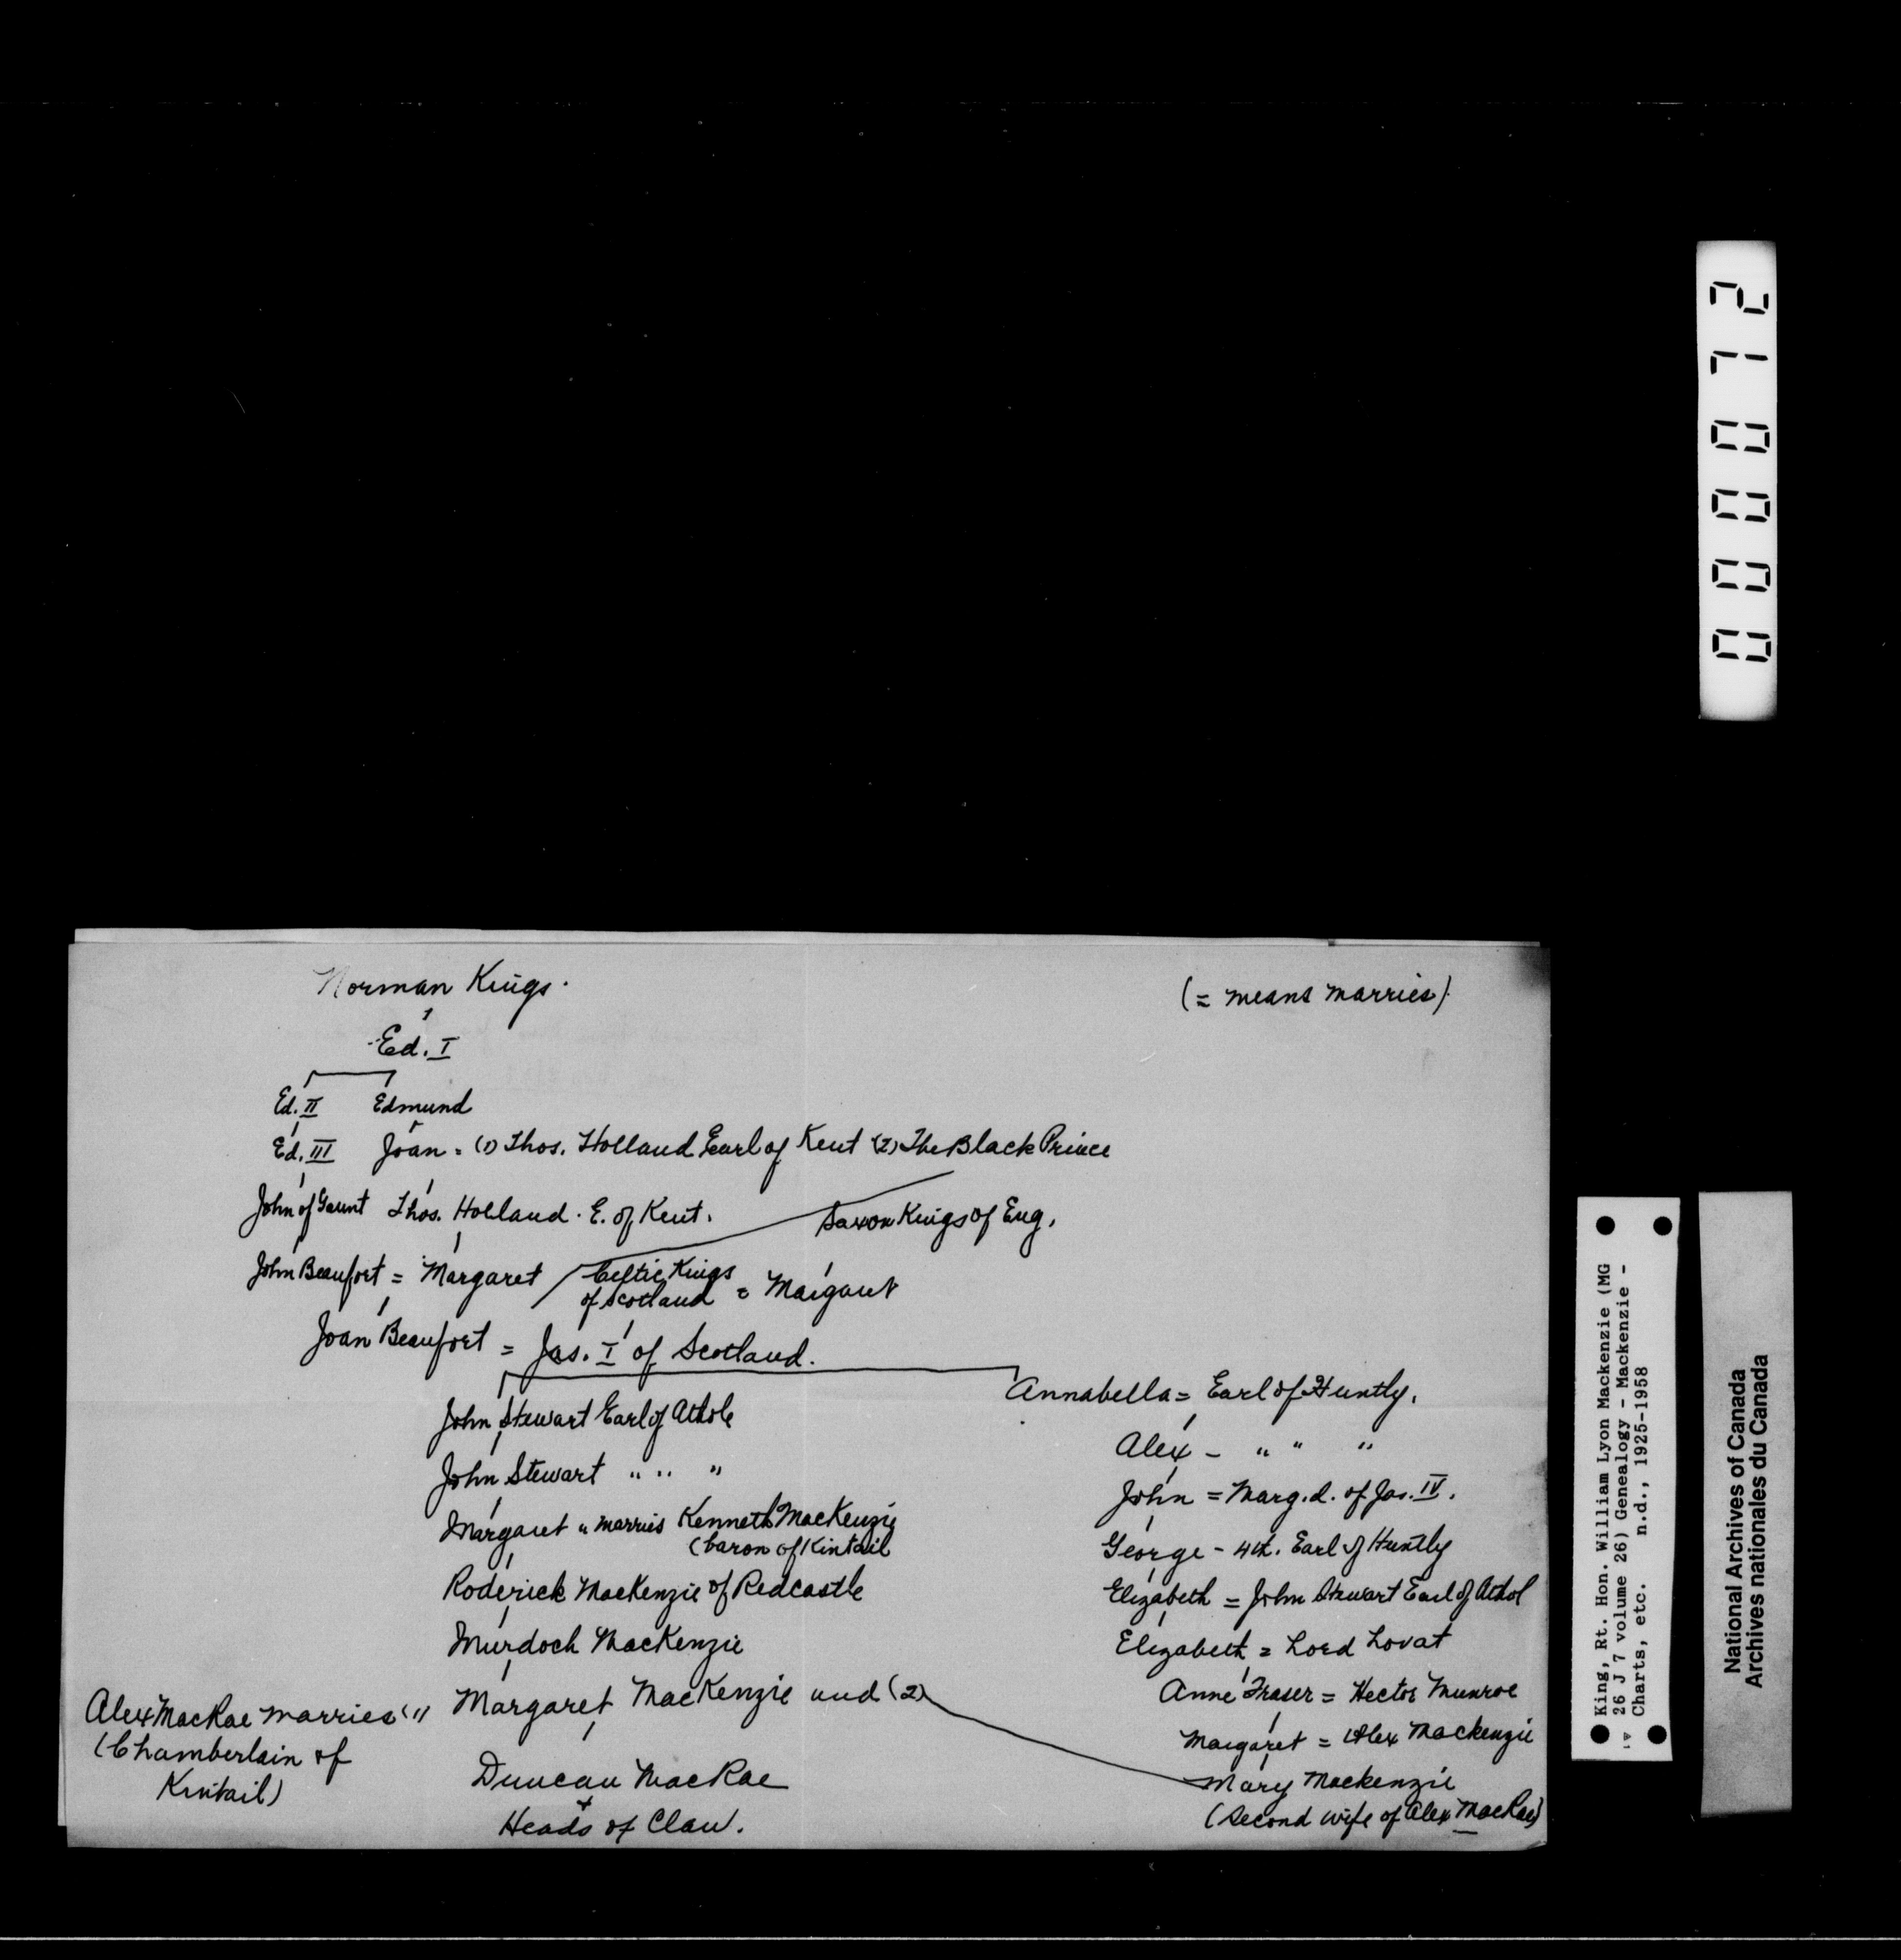 Norman Kings.
(= means marries).
Ed. I
Ed. II Edmund
Ed. III Joan = (1) Thos. Holland Earl of Kent (2) The Black Prince
John of Gaunt Thos. Holland. E. of Kent.
Saxon Kings of Eng.
John Beaufort = Margaret
Celtic Kings
of Scotland = Margaret
Joan Beaufort = Jas. I of Scotland.
John Stewart Earl of Athole
John Stewart " " "
Margaret " marries Kenneth MacKenzie
(baron of Kintail
Roderick MacKenzie of Redcastle
Murdoch MacKenzie
Alex MacRae marries (1) Margaret MacKenzie and (2)
(Chamberlain of
Kintail)
Duncan MacRae
Heads of Clan.
Annabella = Earl of Huntly.
Alex - " " "
John = Marg. d. of Jas. IV.
George - 4th. Earl of Huntly
Elizabeth = John Stewart Earl of Athol
Elizabeth = Lord Lovat
Anne Fraser = Hector Munroe
Margaret = Alex Mackenzie
Mary Mackenzie
(Second wife of Alex MacRae)
000072
King, Rt. Hon. William Lyon Mackenzie (MG
26 J 7 volume 26) Genealogy - Mackenzie -
Charts, etc. n.d., 1925-1958
National Archives of Canada
Archives nationales du Canada